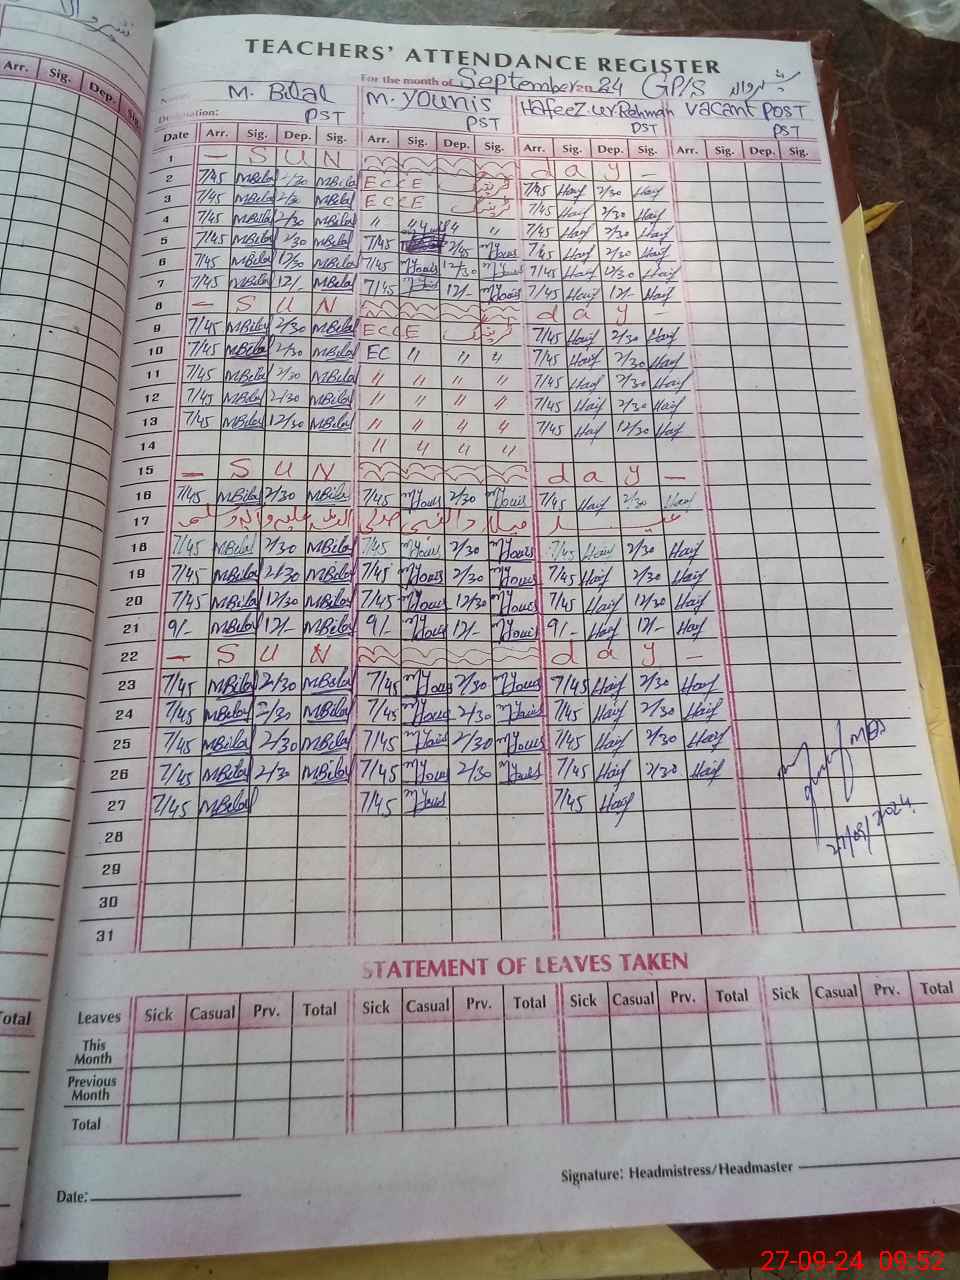 Arr. Sig. Dep. Sig.
TEACHERS' ATTENDANCE REGISTER
For the month of September 2024 GP/S
M. Bilal M. Younis Hafeez.ur.Rahman Vacant Post
Designation: PST PST PST PST
Date Arr. Sig. Dep. Sig. Arr. Sig. Dep. Sig. Arr. Sig. Dep. Sig. Arr. Sig. Dep. Sig.
1 — S U N d a y —
2 7/45 MBilal 2/30 MBilal ECCE ٹریننگ 7/45 Haif 2/30 Haif
3 7/45 MBilal 2/30 MBilal ECCE ٹریننگ 7/45 Haif 2/30 Haif
4 7/45 MBilal 2/30 MBilal " " " " 7/45 Haif 2/30 Haif
5 7/45 MBilal 2/30 MBilal 7/45 2/45 MYouis 7/45 Haif 2/30 Haif
6 7/45 MBilal 12/30 MBilal 7/45 MYouis 12/30 MYouis 7/45 Haif 12/30 Haif
7 7/45 MBilal 12/- MBilal 7/45 MYouis 12/- MYouis 7/45 Haif 12/- Haif
8 — S U N d a y —
9 7/45 MBilal 2/30 MBilal ECCE ٹریننگ 7/45 Haif 2/30 Haif
10 7/45 MBilal 2/30 MBilal EC " " " 7/45 Haif 2/30 Haif
11 7/45 MBilal 2/30 MBilal " " " " 7/45 Haif 2/30 Haif
12 7/45 MBilal 2/30 MBilal " " " " 7/45 Haif 2/30 Haif
13 7/45 MBilal 12/30 MBilal " " " " 7/45 Haif 12/30 Haif
14 " " " "
15 — S U N d a y —
16 7/45 MBilal 2/30 MBilal 7/45 MYouis 2/30 MYouis 7/45 Haif 2/30 Haif
17 عید میلاد النبی صلی اللہ علیہ والہ وسلم
18 7/45 MBilal 2/30 MBilal 7/45 MYouis 2/30 MYouis 7/45 Haif 2/30 Haif
19 7/45 MBilal 2/30 MBilal 7/45 MYouis 2/30 MYouis 7/45 Haif 2/30 Haif
20 7/45 MBilal 12/30 MBilal 7/45 MYouis 12/30 MYouis 7/45 Haif 12/30 Haif
21 9/- MBilal 12/- MBilal 9/- MYouis 12/- MYouis 9/- Haif 12/- Haif
22 — S U N d a y —
23 7/45 MBilal 2/30 MBilal 7/45 MYouis 2/30 MYouis 7/45 Haif 2/30 Haif
24 7/45 MBilal 2/30 MBilal 7/45 MYouis 2/30 MYouis 7/45 Haif 2/30 Haif
25 7/45 MBilal 2/30 MBilal 7/45 MYouis 2/30 MYouis 7/45 Haif 2/30 Haif
26 7/45 MBilal 2/30 MBilal 7/45 MYouis 2/30 MYouis 7/45 Haif 2/30 Haif
27 7/45 MBilal 7/45 MYouis 7/45 Haif
27/09/2024.
28
29
30
31
STATEMENT OF LEAVES TAKEN
Leaves Sick Casual Prv. Total Sick Casual Prv. Total Sick Casual Prv. Total Sick Casual Prv. Total
This Month
Previous Month
Total
Signature: Headmistress/Headmaster
Date:
27-09-24 09:52